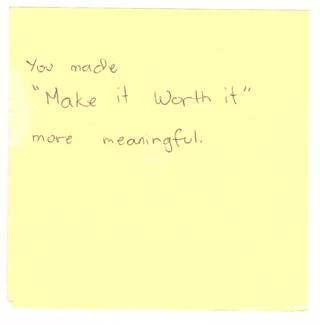 You made
"Make it Worth it"
more meaningful.